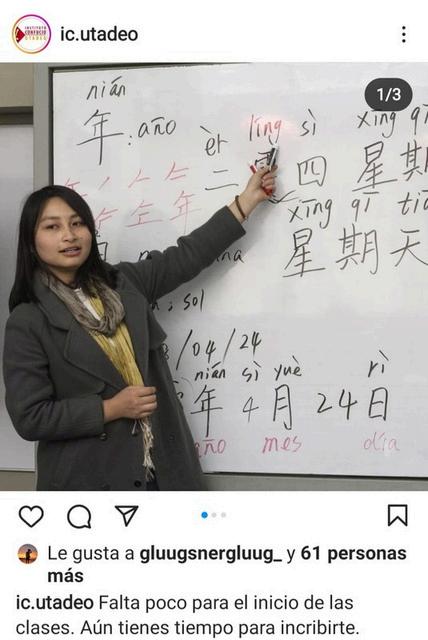 INSTITUTO
CONFUCIO
UTADEO
ic.utadeo
1/3
nián
年:año
èr líng sì xīng qī
二 零 四 星 期
xīng qī tiā
星 期 天
sol
/04/24
nián sì yuè rì
年 4 月 24 日
año mes día
Le gusta a gluugsnergluug_ y 61 personas
más
ic.utadeo Falta poco para el inicio de las
clases. Aún tienes tiempo para incribirte.